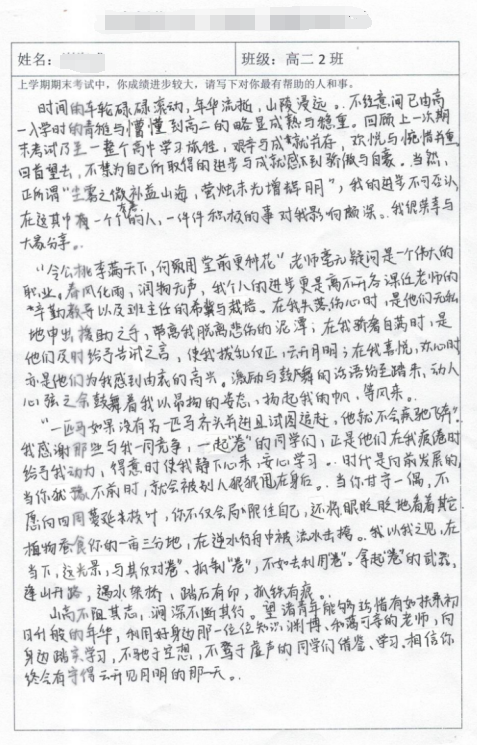 姓名：
班级：高二2班
上学期期末考试中，你成绩进步较大，请写下对你最有帮助的人和事。
时间的车轮碌碌滚动，年华流逝，山陵浸远。不经意间已由高
一入学时的青涩与懵懂到高二的略显成熟与稳重。回顾上一次期
末考试乃至一整个高中学习旅程，艰辛与成就并存，欢悦与惋惜并重
回首望去，不禁为自己所取得的进步与成就感到骄傲与自豪。当然，
正所谓“尘雾之微补益山海，萤烛末光增辉日月”，我的进步不可否认，
在这其中有一个个有意的人，一件件积极的事对我影响颇深。我很荣幸与
大家分享。
“令公桃李满天下，何须用堂前更种花”老师毫无疑问是一个伟大的
职业。春风化雨，润物无声，我个人的进步更是离不开各课任老师的
辛勤教导以及班主任的希冀与栽培。在我失落伤心时，是他们无私
地伸出援助之手，带离我脱离悲伤的泥潭；在我骄奢自满时，是
他们及时给予告诫之言，使我拨乱反正，云开月明；在我喜悦，欢心时
亦是他们为我感到由衷的高兴。激励与鼓舞的话语纷至踏来，动人
心弦之余鼓舞着我以昂扬的姿态，扬起我的帆，等风来。
“一匹马如果没有另一匹马齐头并进且试图追赶，他就不会疾驰飞奔”
我感谢那些与我一同竞争，一起“卷”的同学们，正是他们在我疲倦时
给予我动力，得意时使我静下心来，安心学习。时代是向前发展的，
当你犹豫不前时，就会被别人狠狠甩在身后。当你甘于一偶，不
愿向四周蔓延末枝叶，你不仅会局限住自己，还将眼眨眨地看着其它
植物蚕食你的一亩三分地，在逆水行舟中被流水击垮。我以我之见，在
当下，这光景，与其反对“卷”、抵制“卷”，不如去利用“卷”。拿起“卷”的武器，
逢山开路，遇水架桥、踏石有印，抓铁有痕。
山高不阻其志，涧深不断其行。望诸青年能够珍惜有如扶桑初
日升般的年华，利用好身边那一位位知识渊博、和蔼可亲的老师，向
身边踏实学习，不驰于空想，不骛于虚声的同学们借鉴、学习。相信你
终会有守得云开见月明的那一天。